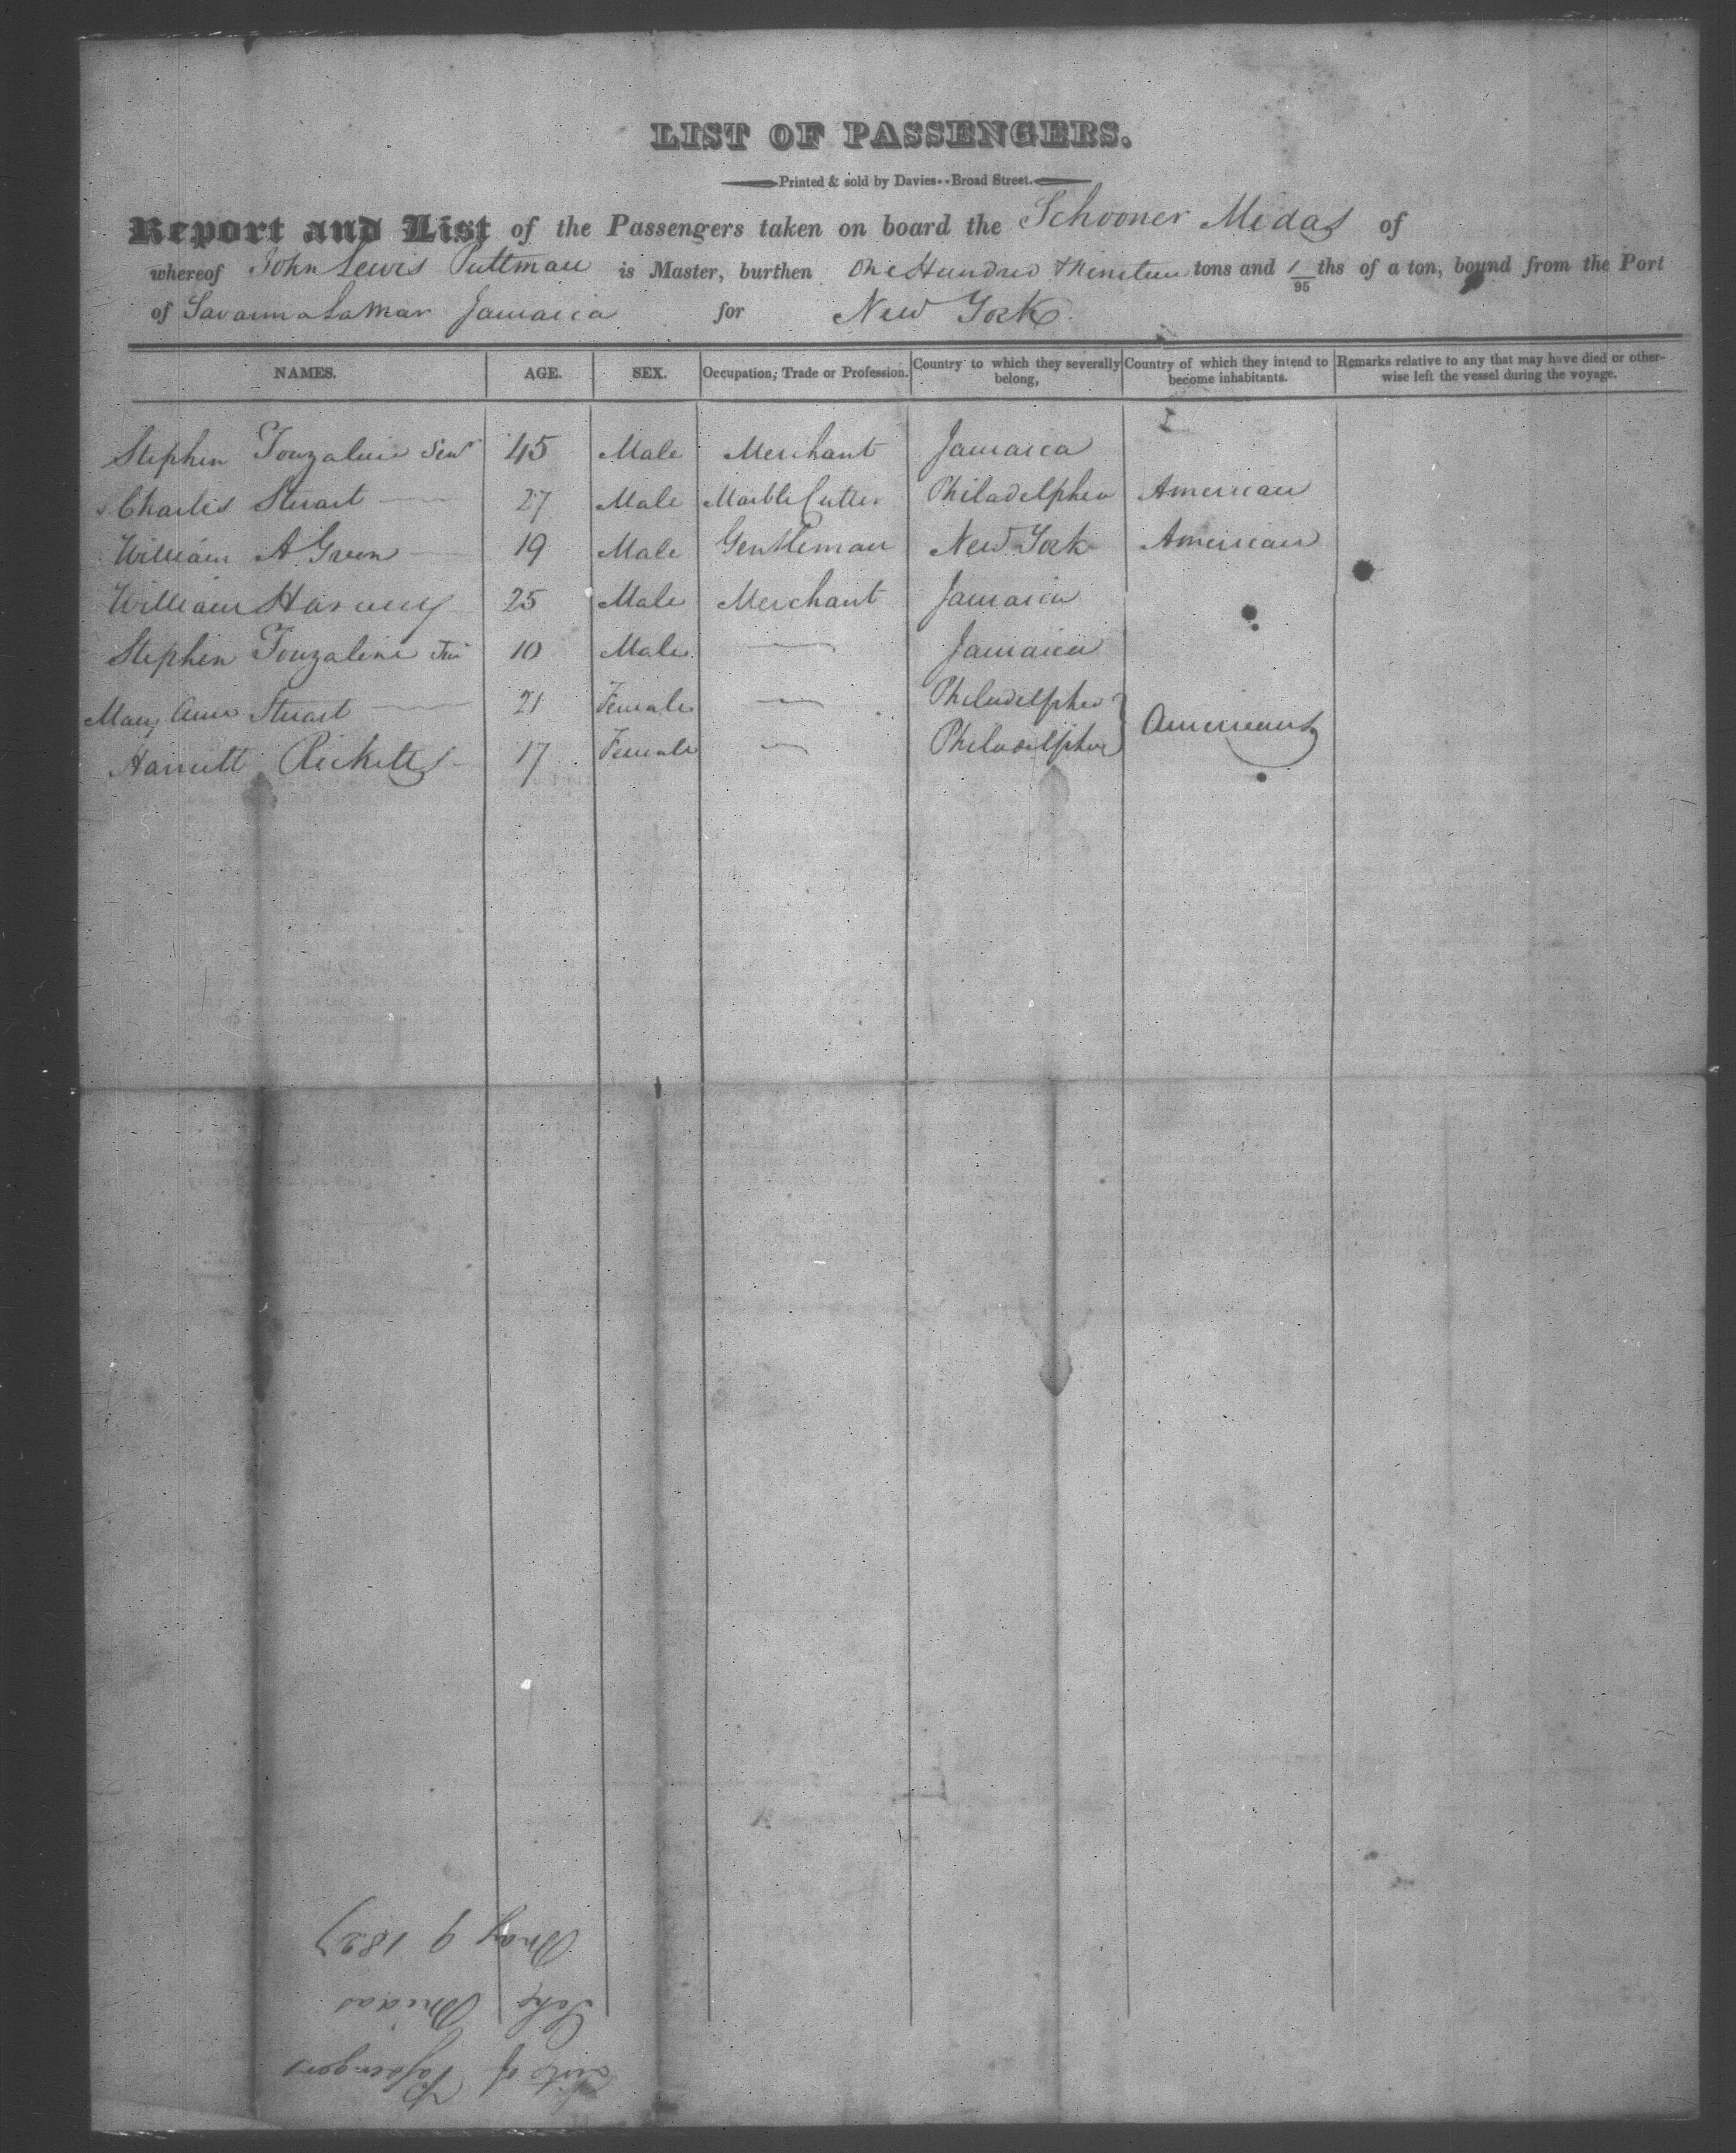 LIST OF PASSENGERS.
Printed & sold by Davies--Broad Street.
Report and List of the Passengers taken on board the Schooner Midas of
whereof John Lewis Puttman is Master, burthen One Hundred & Nineteen tons and 1/95 ths of a ton, bound from the Port
of Savanna La Mar Jamaica for New York
NAMES. AGE. SEX. Occupation, Trade or Profession. Country to which they severally belong, Country of which they intend to become inhabitants. Remarks relative to any that may have died or otherwise left the vessel during the voyage.
Stephen Touzalin Senr 45 Male Merchant Jamaica
Charles Stuart 27 Male Marble Cutter Philadelphia American
William A Green 19 Male Gentleman New York American
William Harvey 25 Male Merchant Jamaica
Stephen Touzalin Jun 10 Male Jamaica
Mary Ann Stuart 21 Female Philadelphia
Americans
Harriett Ricketts 17 Female Philadelphia
List of Passengers
Schr Midas
May 9 1827